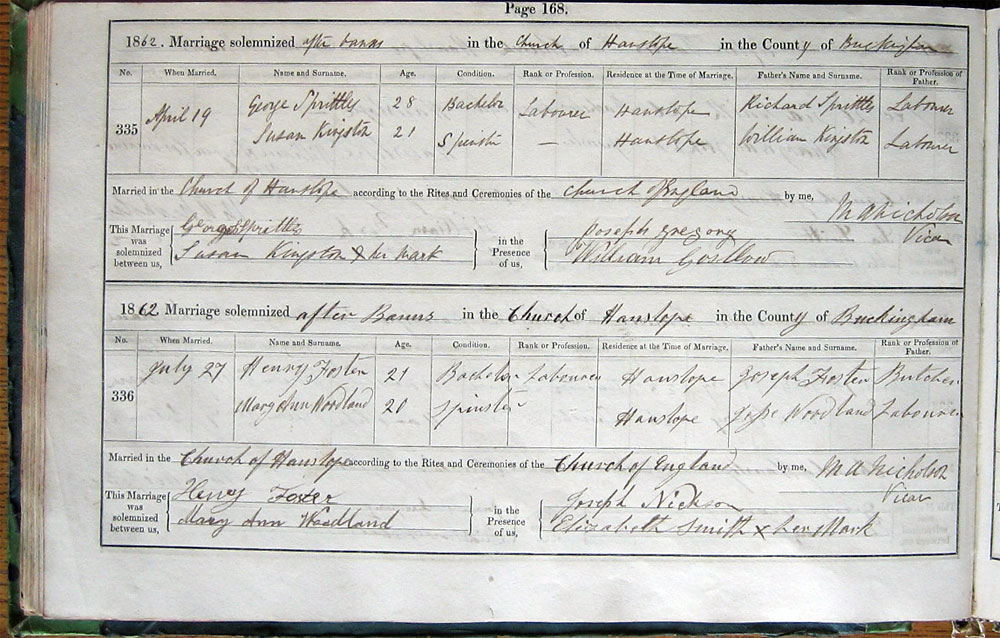 Page 168.
1862. Marriage solemnized after banns in the Church of Hanslope in the County of Buckingham
No. When Married. Name and Surname. Age. Condition. Rank or Profession. Residence at the Time of Marriage. Father's Name and Surname. Rank or Profession of Father.
335 April 19 George Sprittles 28 Bachelor Labourer Hanslope Richard Sprittles Labourer
Susan Kingston 21 Spinster — Hanslope William Kingston Labourer
Married in the Church of Hanslope according to the Rites and Ceremonies of the Church of England by me, M A Nicholson
Vicar
This Marriage was solemnized between us, George Sprittles in the Presence of us, Joseph Gregory
Susan Kingston x her mark William Goslow
1862. Marriage solemnized after Banns in the Church of Hanslope in the County of Buckingham
No. When Married. Name and Surname. Age. Condition. Rank or Profession. Residence at the Time of Marriage. Father's Name and Surname. Rank or Profession of Father.
336 July 27 Henry Foster 21 Bachelor Labourer Hanslope Joseph Foster Butcher
Mary Ann Woodland 20 Spinster Hanslope Woodland Labourer
Married in the Church of Hanslope according to the Rites and Ceremonies of the Church of England by me, M A Nicholson
Vicar
This Marriage was solemnized between us, Henry Foster in the Presence of us, Joseph Nickson
Mary Ann Woodland Elizabeth Smith x her Mark